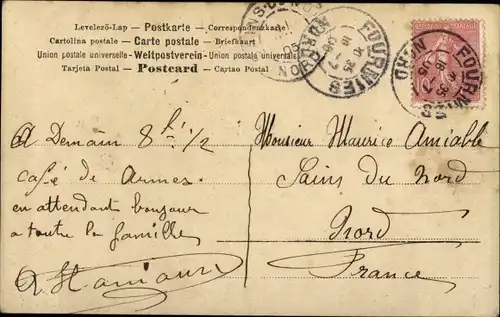 Levelező-Lap — Postkarte — Correspondenzkarte
Cartolina postale — Carte postale — Briefkaart
Union postale universelle — Weltpostverein — Union postale universale
Tarjeta Postal — Postcard — Cartao Postal
FOURMIES
NORD
FOURMIES
NORD
A Demain 8 h 1/2
café de Armes.
en attendant bonjour
a toute la famille
Monsieur Maurice Amiable
Sains Du Nord
Nord
France